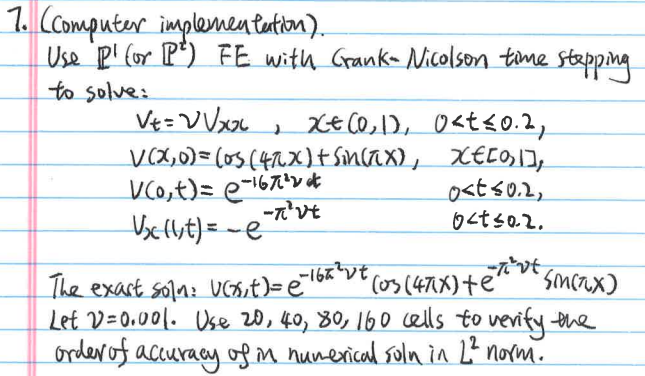 7. (Computer implementation).
Use ℙ¹ (or ℙ²) FE with Crank-Nicolson time stepping
to solve:
V_t = νV_xx , x∈(0,1), 0<t≤0.2,
V(x,0) = cos(4πx)+sin(πx), x∈[0,1],
V(0,t) = e^{-16π²νt} 0<t≤0.2,
V_x(1,t) = -e^{-π²νt} 0<t≤0.2.
The exact soln: V(x,t)=e^{-16π²νt}cos(4πx)+e^{-π²νt}sin(πx)
Let ν=0.001. Use 20, 40, 80, 160 cells to verify the
order of accuracy of in numerical soln in L² norm.